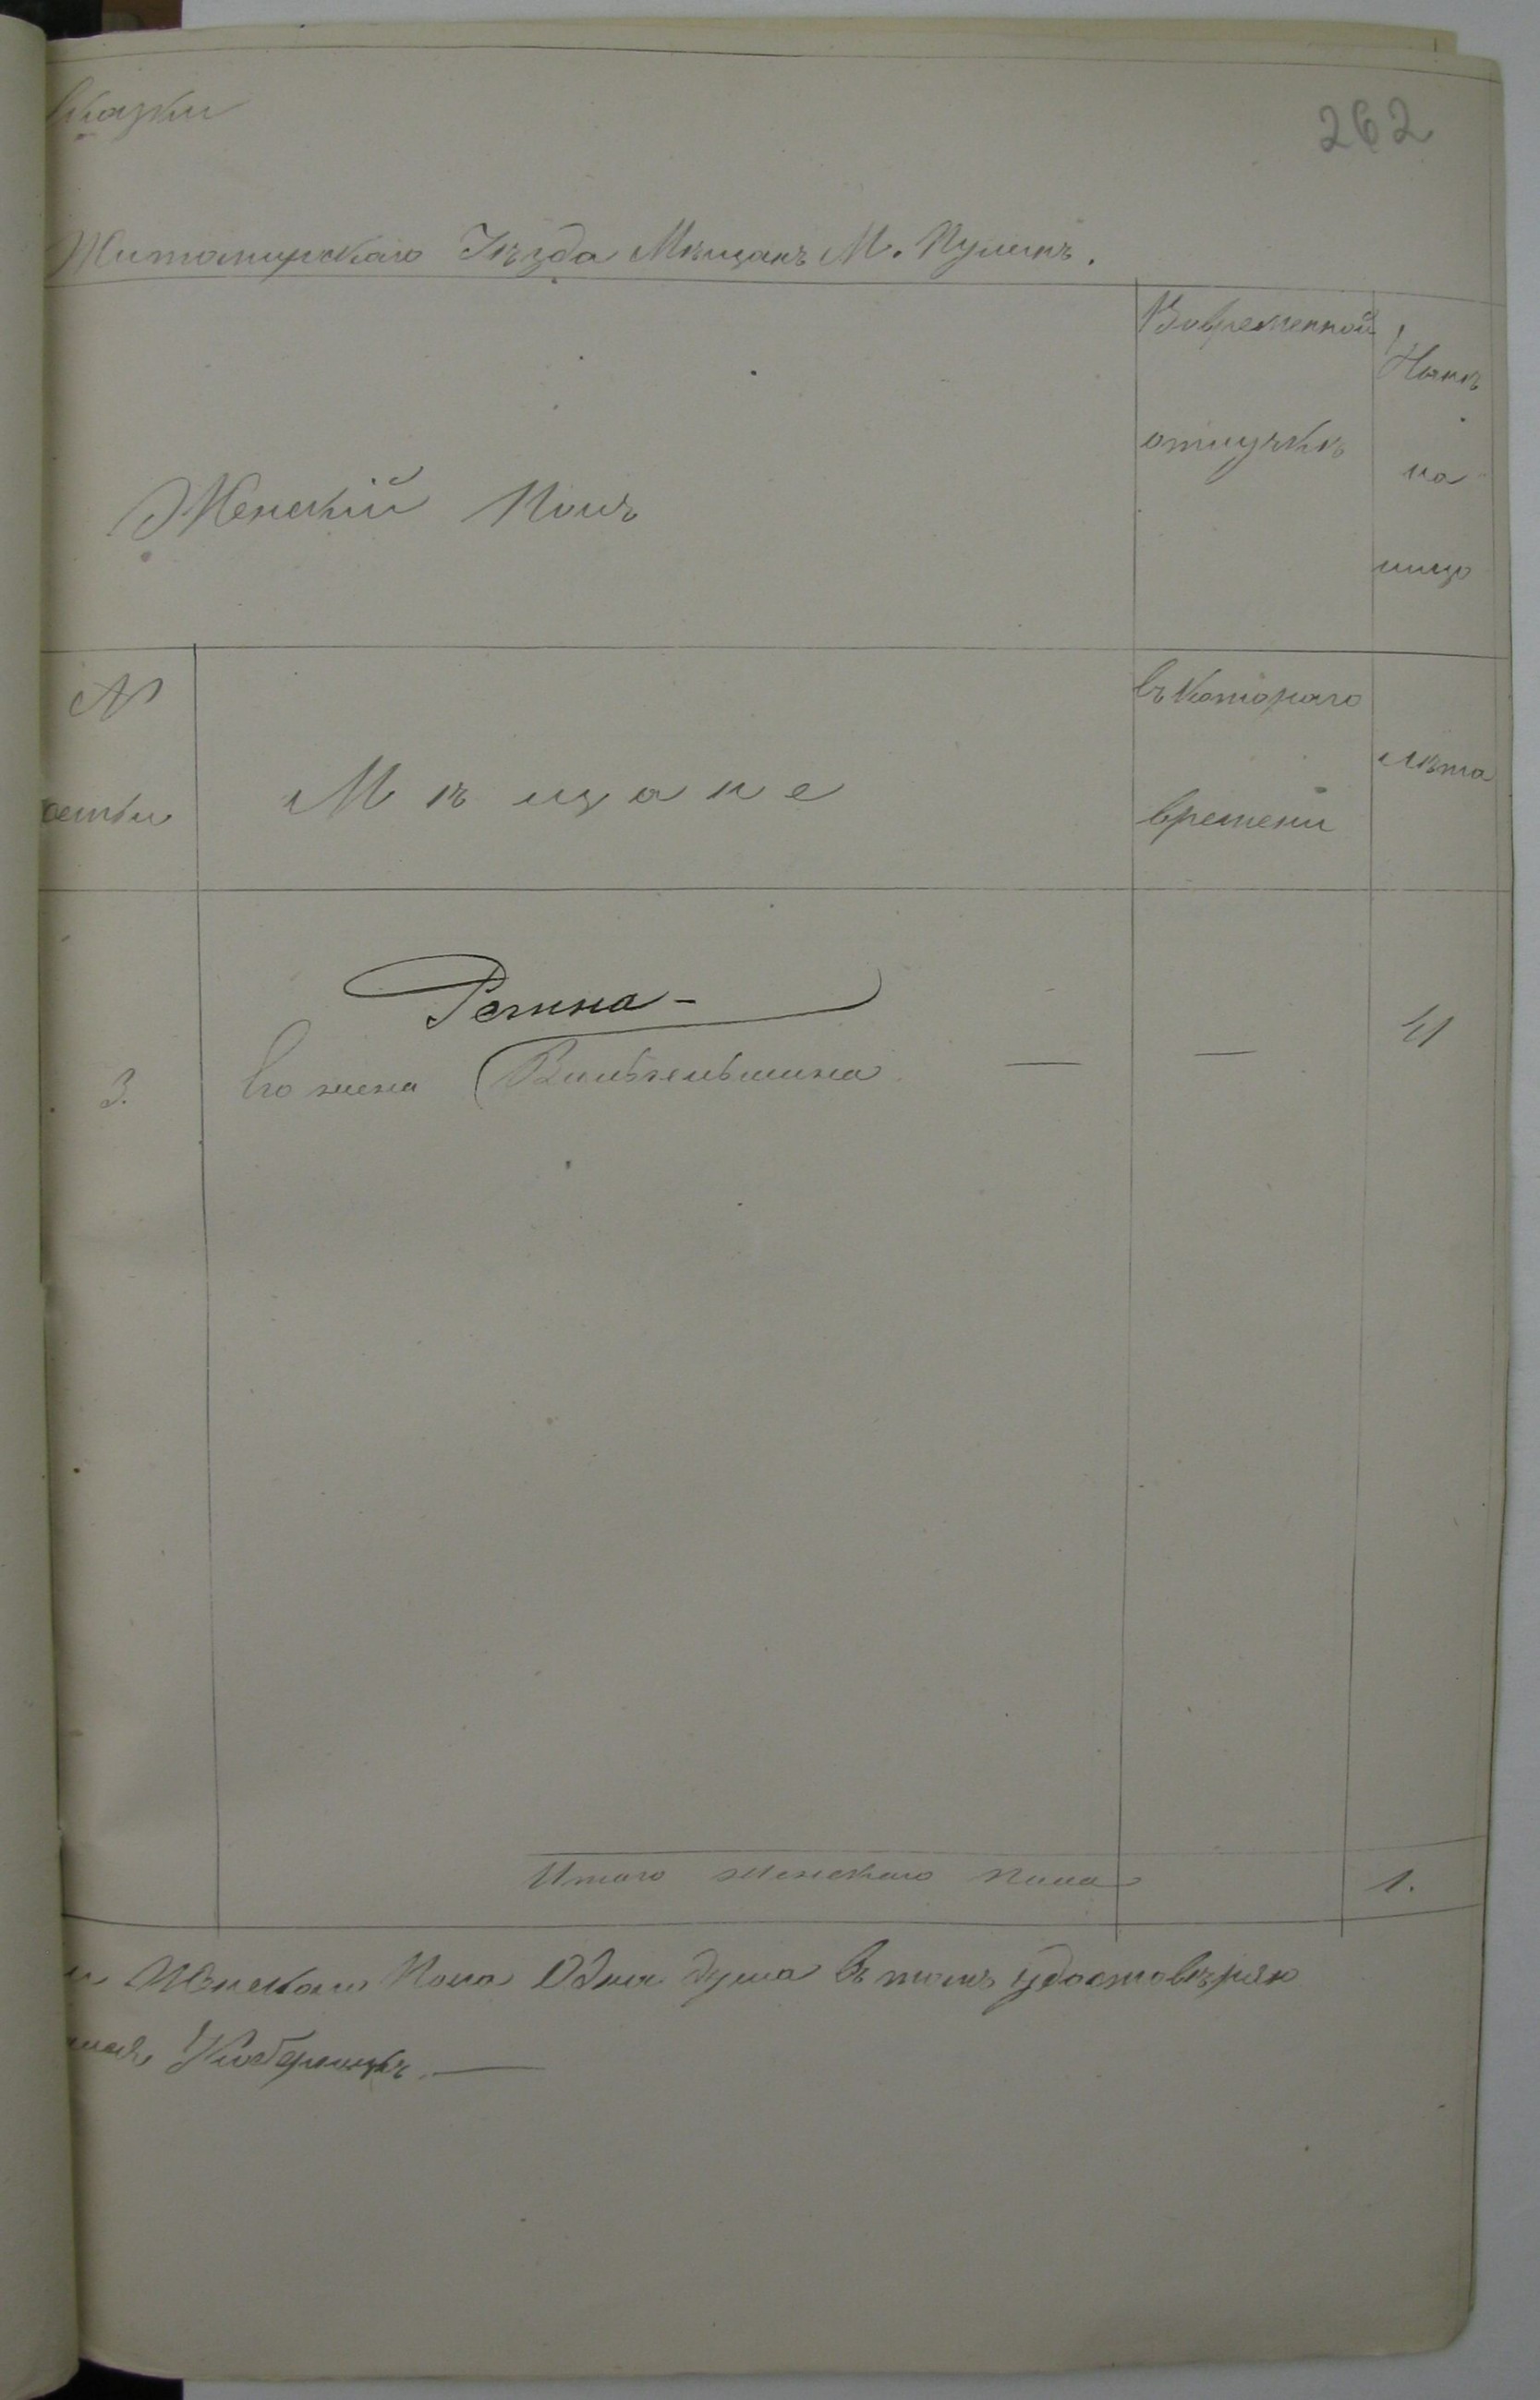 262
сказки
Житомирскаго Уѣзда Мѣщанъ М. Пулинъ.
Женскій Полъ
Вовременной
отлучкѣ
Нынѣ
на
лицо
№
семьи
Мѣщане
въ котораго
времени
лѣта
Регина -
3. Его жена Вильгельмина — — 41
Итого женскаго пола 1.
и Женскаго Пола Одна душа въ томъ удостовѣряю